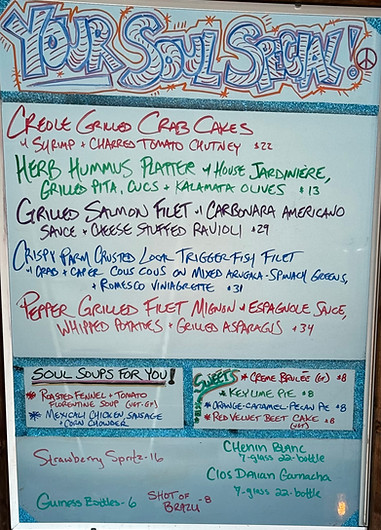 YOUR SOUL SPECIAL!
CREOLE GRILLED CRAB CAKES
w SHRIMP + CHARRED TOMATO CHUTNEY $22
HERB HUMMUS PLATTER w HOUSE JARDINIÈRE,
GRILLED PITA, CUCS + KALAMATA OLIVES $13
GRILLED SALMON FILET w CARBONARA AMERICANO
SAUCE + CHEESE STUFFED RAVIOLI $29
CRISPY PARM CRUSTED LOCAL TRIGGER FISH FILET
w CRAB + CAPER COUS COUS ON MIXED ARUGALA-SPINACH GREENS,
+ ROMESCO VINIGRETTE $31
PEPPER GRILLED FILET MIGNON w ESPAGNOLE SAUCE,
WHIPPED POTATOES + GRILLED ASPARAGUS $34
SOUL SOUPS FOR YOU!
* ROASTED FENNEL + TOMATO
FLORENTINE SOUP (VGT-GF)
* MEXICALI CHICKEN SAUSAGE
+ CORN CHOWDER
SWEETS
* CREME BRULÉE (GF) $8
* KEYLIME PIE $8
* ORANGE-CARAMEL-PECAN PIE $8
* RED VELVET BEET CAKE $8
(VGT)
Strawberry Spritz-16
CHENIN BLANC
7-glass 22-bottle
Clos Darian Garnacha
7-glass 22-bottle
Guiness Bottles-6
SHOT OF BRAZU -8